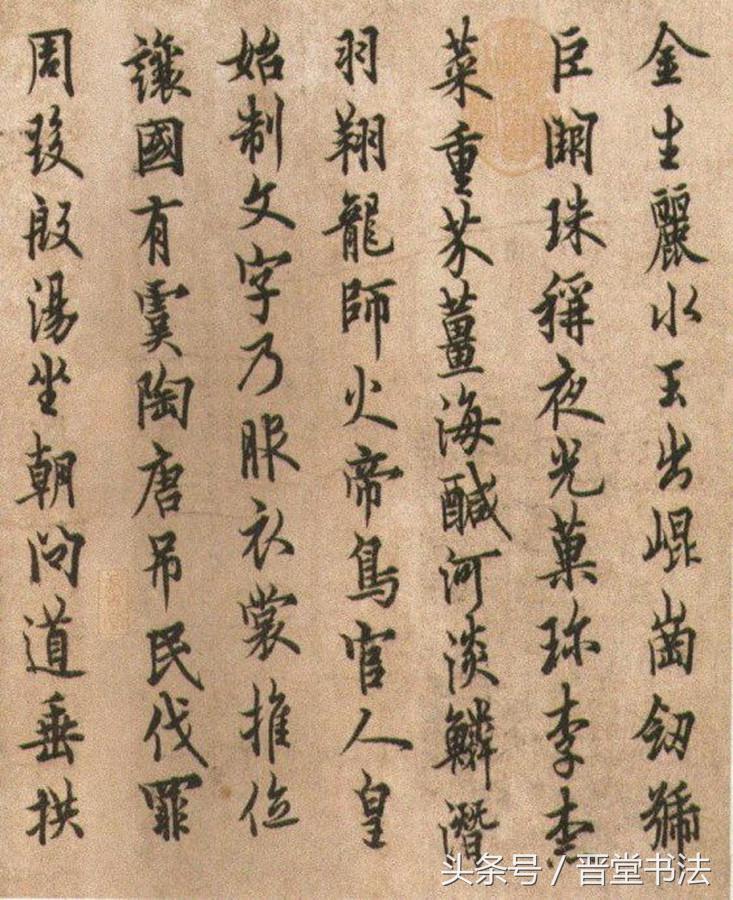 金生麗水玉出崐崗劒號
巨闕珠稱夜光菓珎李柰
菜重芥薑海醎河淡鱗潛
羽翔龍師火帝鳥官人皇
始制文字乃服衣裳推位
讓國有虞陶唐吊民伐罪
周發殷湯坐朝問道垂拱
头条号 / 晋堂书法